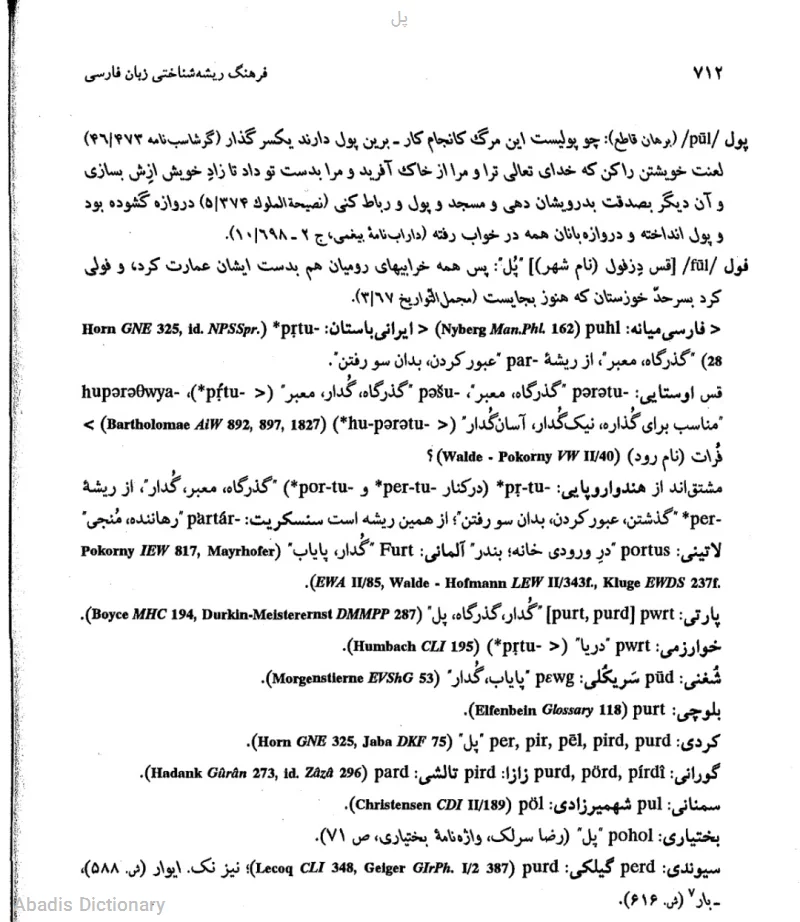 پل
۷۱۲ فرهنگ ریشه‌شناختی زبان فارسی
پول /pūl/ (برهان قاطع): چو پولیست این مرگ کانجام کار ـ برین پول دارند یکسر گذار (گرشاسب‌نامه ۴۶/۴۷۳)
لعنت خویشتن راکن که خدای تعالی ترا و مرا از خاک آفرید و مرا بدست تو داد تا زادِ خویش ازش بسازی
و آن دیگر بصدقت بدرویشان دهی و مسجد و پول و رباط کنی (نصیحةالملوک ۵/۳۷۴) دروازه گشوده بود
و پول انداخته و دروازه‌بانان همه در خواب رفته (داراب‌نامهٔ بیغمی، ج ۲ ـ ۱۰/۶۹۸).
فول /fūl/ [قس دِزفول (نام شهر)] "پُل": پس همه خرابیهای رومیان هم بدست ایشان عمارت کرد، و فولی
کرد بسرحدّ خوزستان که هنوز بجایست (مجمل‌التواریخ ۳/۶۷).
< فارسی‌میانه: puhl (Nyberg Man.Phl. 162) < ایرانی‌باستان: *pṛtu- (Horn GNE 325, id. NPSSpr.
28) "گذرگاه، معبر"، از ریشهٔ par- "عبور کردن، بدان سو رفتن".
قس اوستایی: pərətu- "گذرگاه، معبر"، pəšu- "گذرگاه، گُدار، معبر" (< *pŕ̥tu-)، hupərəθwya-
"مناسب برای گذاره، نیک‌گُدار، آسان‌گُدار" (< *hu-pərətu-) (Bartholomae AiW 892, 897, 1827) >
فُرات (نام رود) (Walde - Pokorny VW II/40)؟
مشتق‌اند از هندواروپایی: *pṛ-tu- (درکنار *per-tu- و *por-tu-) "گذرگاه، معبر، گُدار"، از ریشهٔ
*per- "گذشتن، عبور کردن، بدان سو رفتن"؛ از همین ریشه است سنسکریت: pàrtár- "رهاننده، مُنجی"
لاتینی: portus "درِ ورودی خانه؛ بندر" آلمانی: Furt "گُدار، پایاب" (Pokorny IEW 817, Mayrhofer
EWA II/85, Walde - Hofmann LEW II/343f., Kluge EWDS 237f.).
پارتی: pwrt [purt, purd] "گُدار، گذرگاه، پل" (Boyce MHC 194, Durkin-Meisterernst DMMPP 287).
خوارزمی: pwrt "دریا" (< *pṛtu-) (Humbach CLI 195).
شُغنی: pūd سَریکُلی: pεwg "پایاب، گُدار" (Morgenstierne EVShG 53).
بلوچی: purt (Elfenbein Glossary 118).
کردی: per, pir, pēl, pird, purd "پل" (Horn GNE 325, Jaba DKF 75).
گورانی: purd, pörd, pírdî زازا: pird تالشی: pard (Hadank Gûrân 273, id. Zâzâ 296).
سمنانی: pul شهمیرزادی: pöl (Christensen CDI II/189).
بختیاری: pohol "پل" (رضا سرلک، واژه‌نامهٔ بختیاری، ص ۷۱).
سیوندی: perd گیلکی: purd (Lecoq CLI 348, Geiger GIrPh. I/2 387)؛ نیز نک. ایوار (ش. ۵۸۸)،
ـ بار۷ (ش. ۶۱۶).
Abadis Dictionary